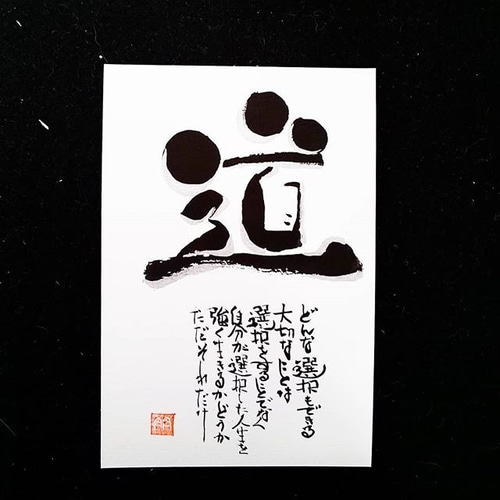 道
どんな選択もできる
大切なことは
選択をすることでなく
自分が選択した人生を
強く生きるかどうか
ただそれだけ